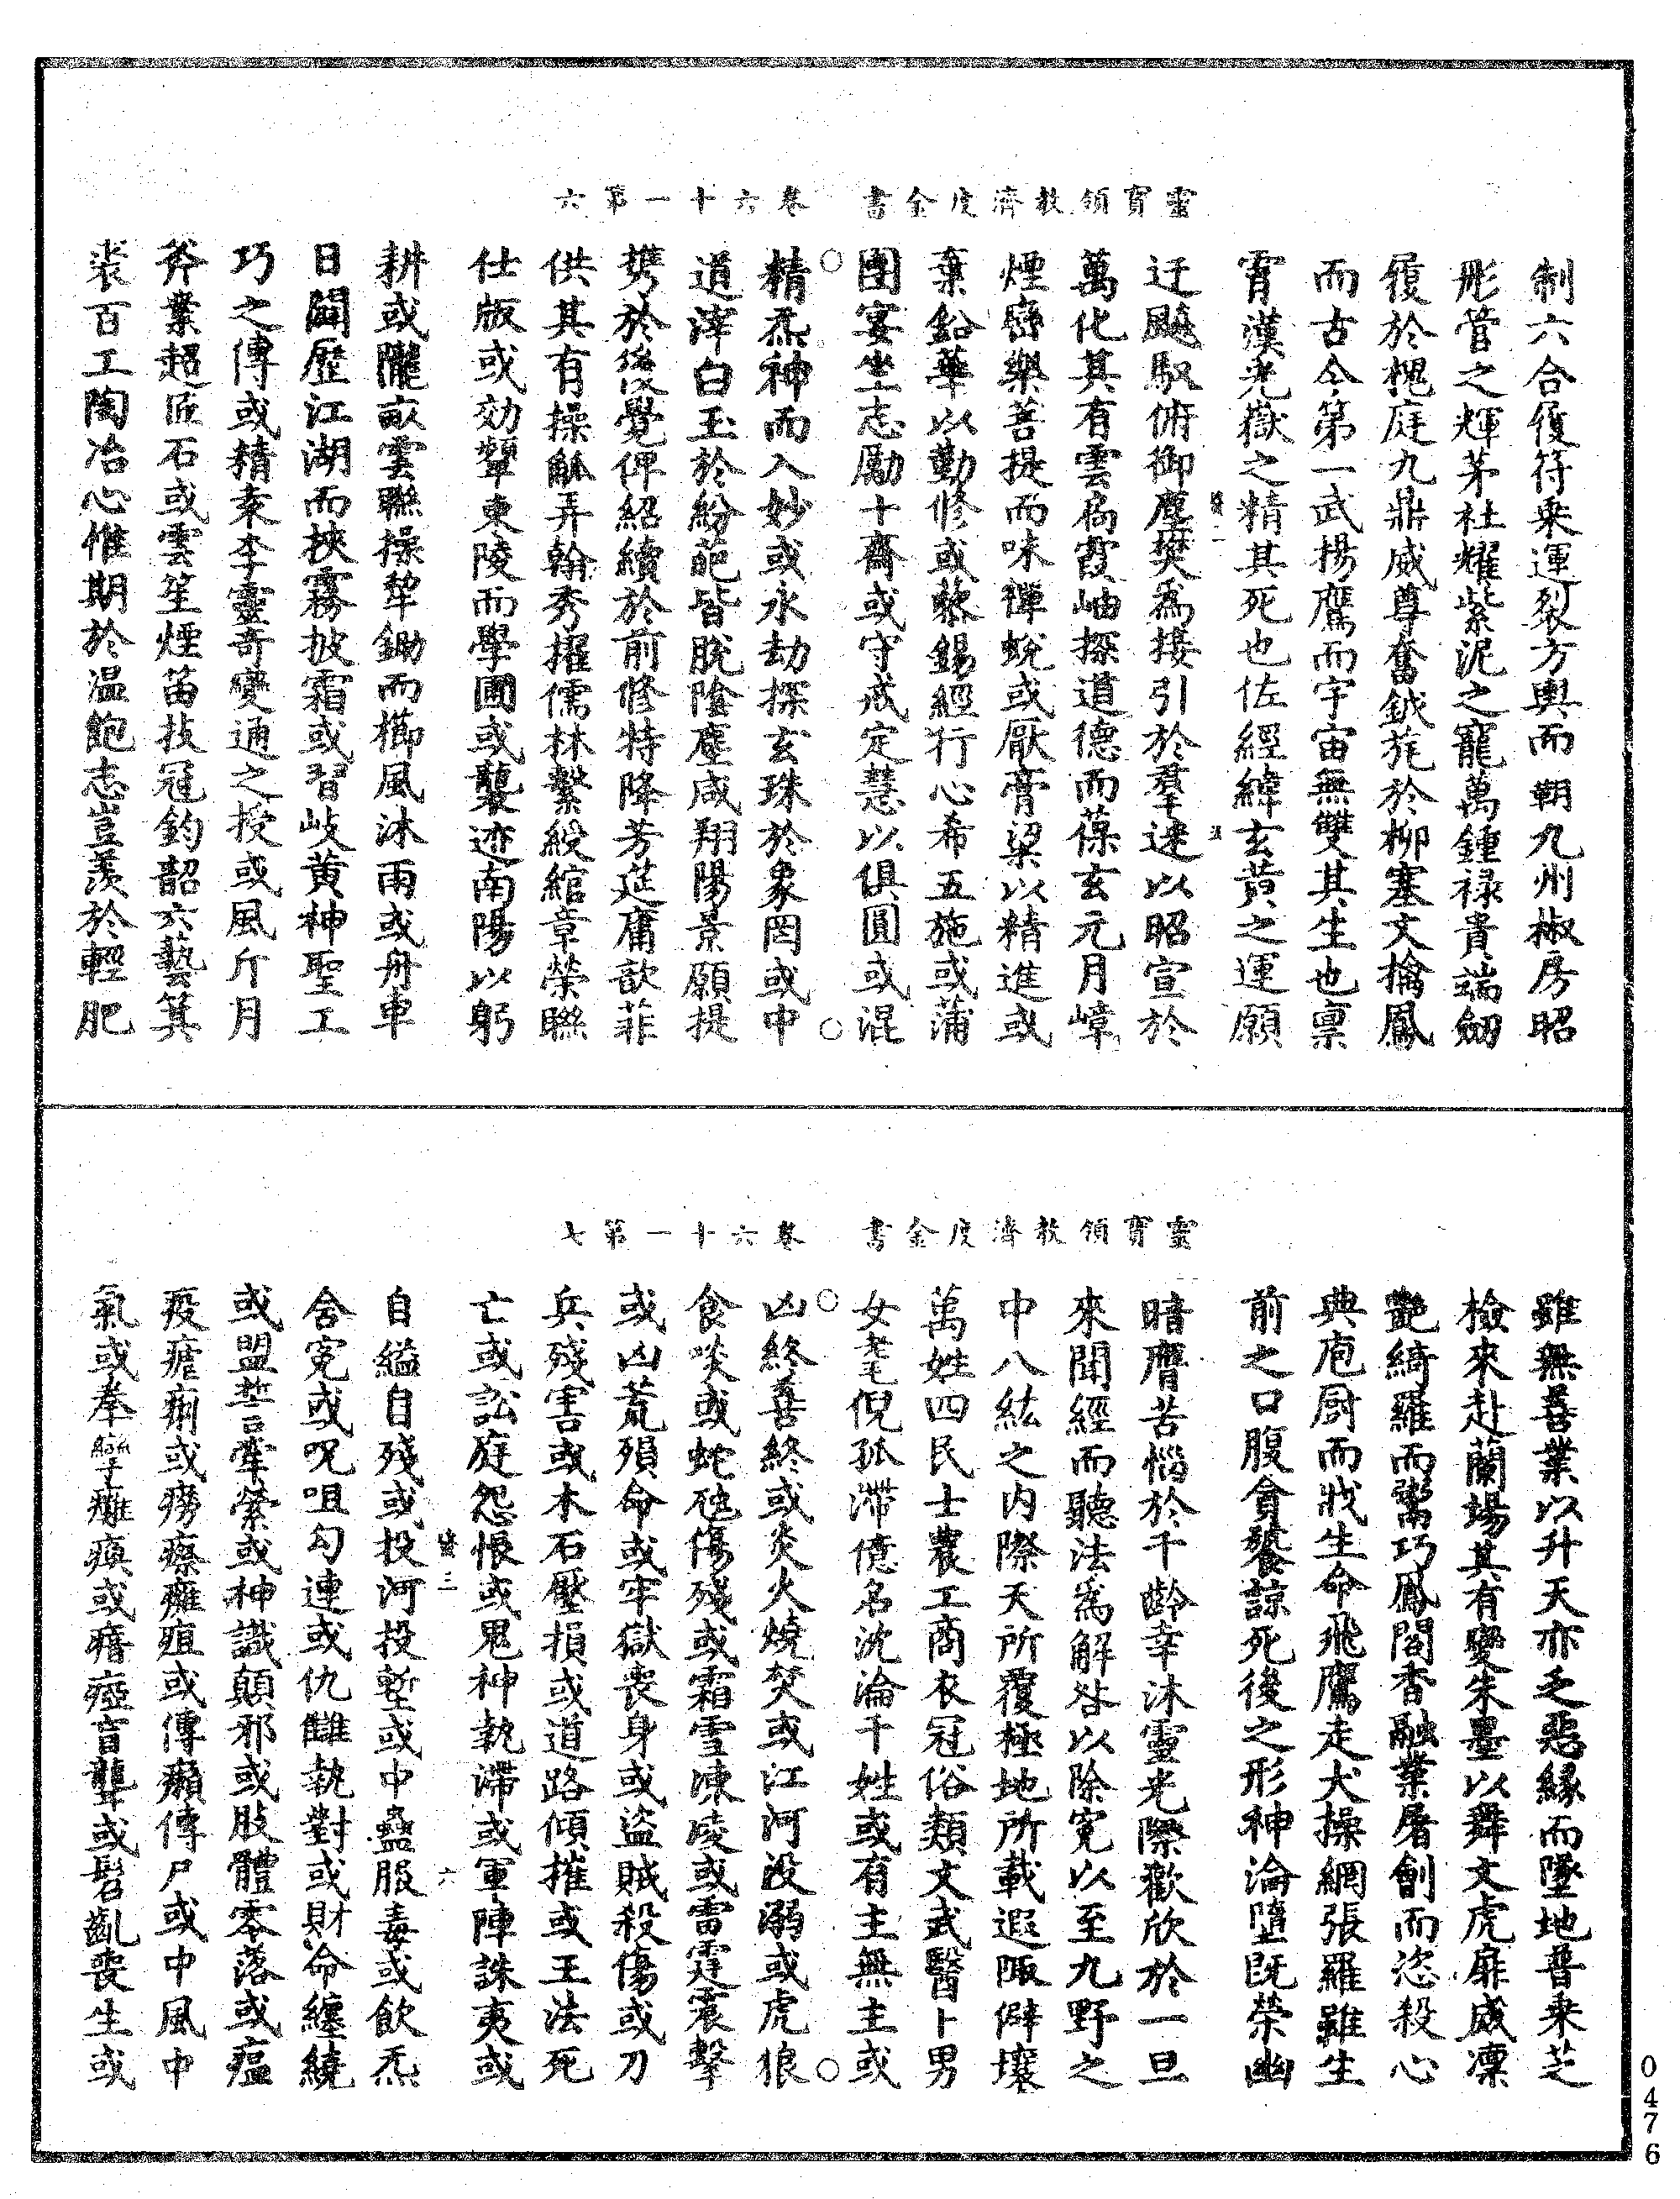 靈寶領教濟度金書　卷六十一第六
制六合履符乘運裂方輿而朝九州椒房昭
彤管之輝茅社耀紫泥之寵萬鍾祿貴端劒
履於槐庭九鼎威尊奮鉞旄於柳塞文擒鳳
而古今第一武揚鷹而宇宙無雙其生也禀
霄漢光嶽之精其死也佐經緯玄黄之運願
迂飈馭俯御塵樊為接引於羣迷以昭宣於
萬化其有雲扃霞岫探道德而葆玄元月嶂
煙巒樂菩提而味禪蛻或厭膏粱以精進或
棄鉛華以勤修或蔾錫經行心希五施或蒲
團宴坐志勵十齋或守戒定慧以俱圓或混
精炁神而入妙或永劫探玄珠於象罔或中
道滓白玉於紛葩皆脫陰塵咸翔陽景願提
携於後覺俾紹續於前修特降芳莚庸歆菲
供其有操觚弄翰秀擢儒林繫綬綰章榮聯
仕版或効顰東陵而學圃或襲迹南陽以躬
耕或隴畝雲聯操犂鋤而櫛風沐雨或舟車
日闐歷江湖而挾霧披霜或習岐黄神聖工
巧之傳或精秦李靈奇變通之授或風斤月
斧業超匠石或雲笙煙笛技冠鈞韶六藝箕
裘百工陶冶心惟期於温飽志豈羨於輕肥
靈寶領教濟度金書　卷六十一第七
雖無善業以升天亦乏惡緣而墜地普乘芝
檢來赴蘭場其有變朱墨以舞文虎扉威凜
艷綺羅而鬻巧鳳閣香融業屠劊而恣殺心
典庖厨而戕生命飛鷹走犬操網張羅雖生
前之口腹貪饕諒死後之形神淪墮既榮幽
暗曆苦惱於千齡幸沐靈光際歡欣於一旦
來聞經而聽法為解咎以除寃以至九野之
中八紘之内際天所覆極地所載遐陬僻壤
萬姓四民士農工商衣冠俗類文武醫卜男
女耄倪孤滯億名沈淪千姓或有主無主或
凶終善終或炎火燒焚或江河没溺或虎狼
食啖或蛇虺傷殘或霜雪凍凌或雷霆震擊
或凶荒殞命或牢獄喪身或盜賊殺傷或刀
兵殘害或木石壓損或道路傾摧或王法死
亡或訟庭怨恨或鬼神執滯或軍陣誅夷或
自縊自殘或投河投塹或中蠱服毒或飲炁
含寃或呪咀勾連或仇讎執對或財命纏繞
或盟誓牽縈或神識顛邪或肢體零落或瘟
疫瘧痢或癆瘵癰疽或傳癩傳尸或中風中
氣或拳攣癱瘓或瘖瘂盲聾或髫齓喪生或
0476